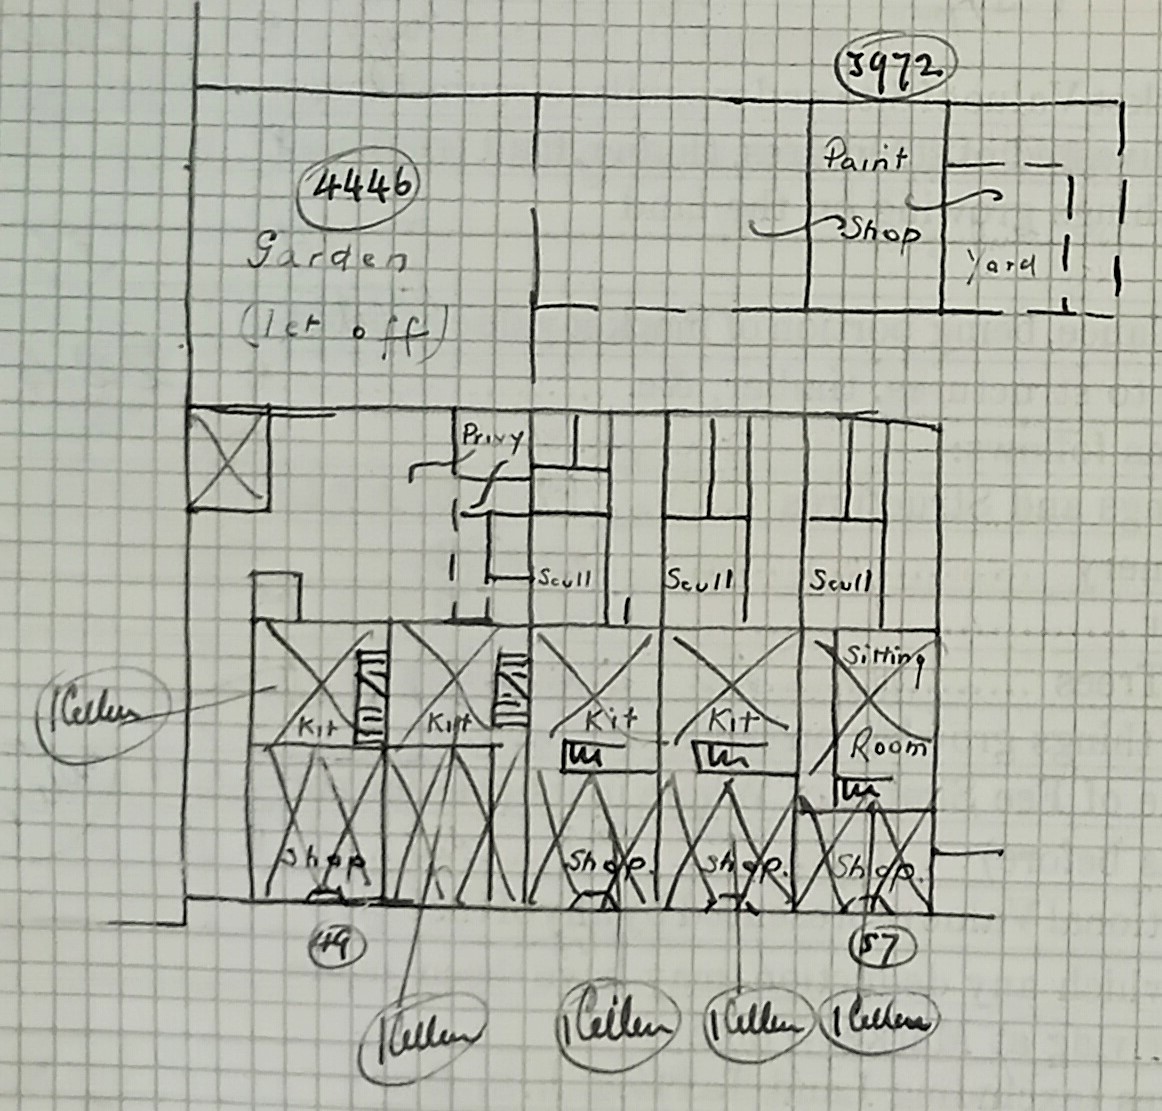 3972
4446
Garden
(let off)
Paint
Shop
Yard
Privy
Scull
Scull
Scull
1 Cellar
Kit
Kit
Kit
Kit
Sitting
Room
Shop
Shop.
Shop.
Shop.
49
57
1 Cellar
1 Cellar
1 Cellar
1 Cellar